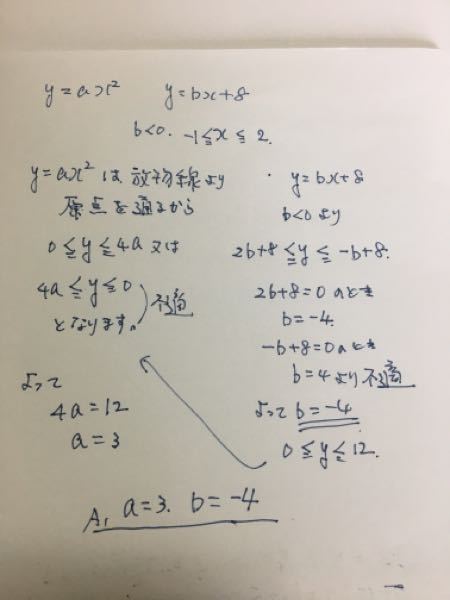 y=ax² y=bx+8
b<0. -1≦x≦2.
y=ax²は放物線より
原点を通るから
0≦y≦4a 又は
4a≦y≦0
となります。
不適
よって
4a=12
a=3
・ y=bx+8
b<0より
2b+8≦y≦-b+8.
2b+8=0のとき
b=-4.
-b+8=0のとき
b=4より不適
よってb=-4
0≦y≦12.
A, a=3. b=-4